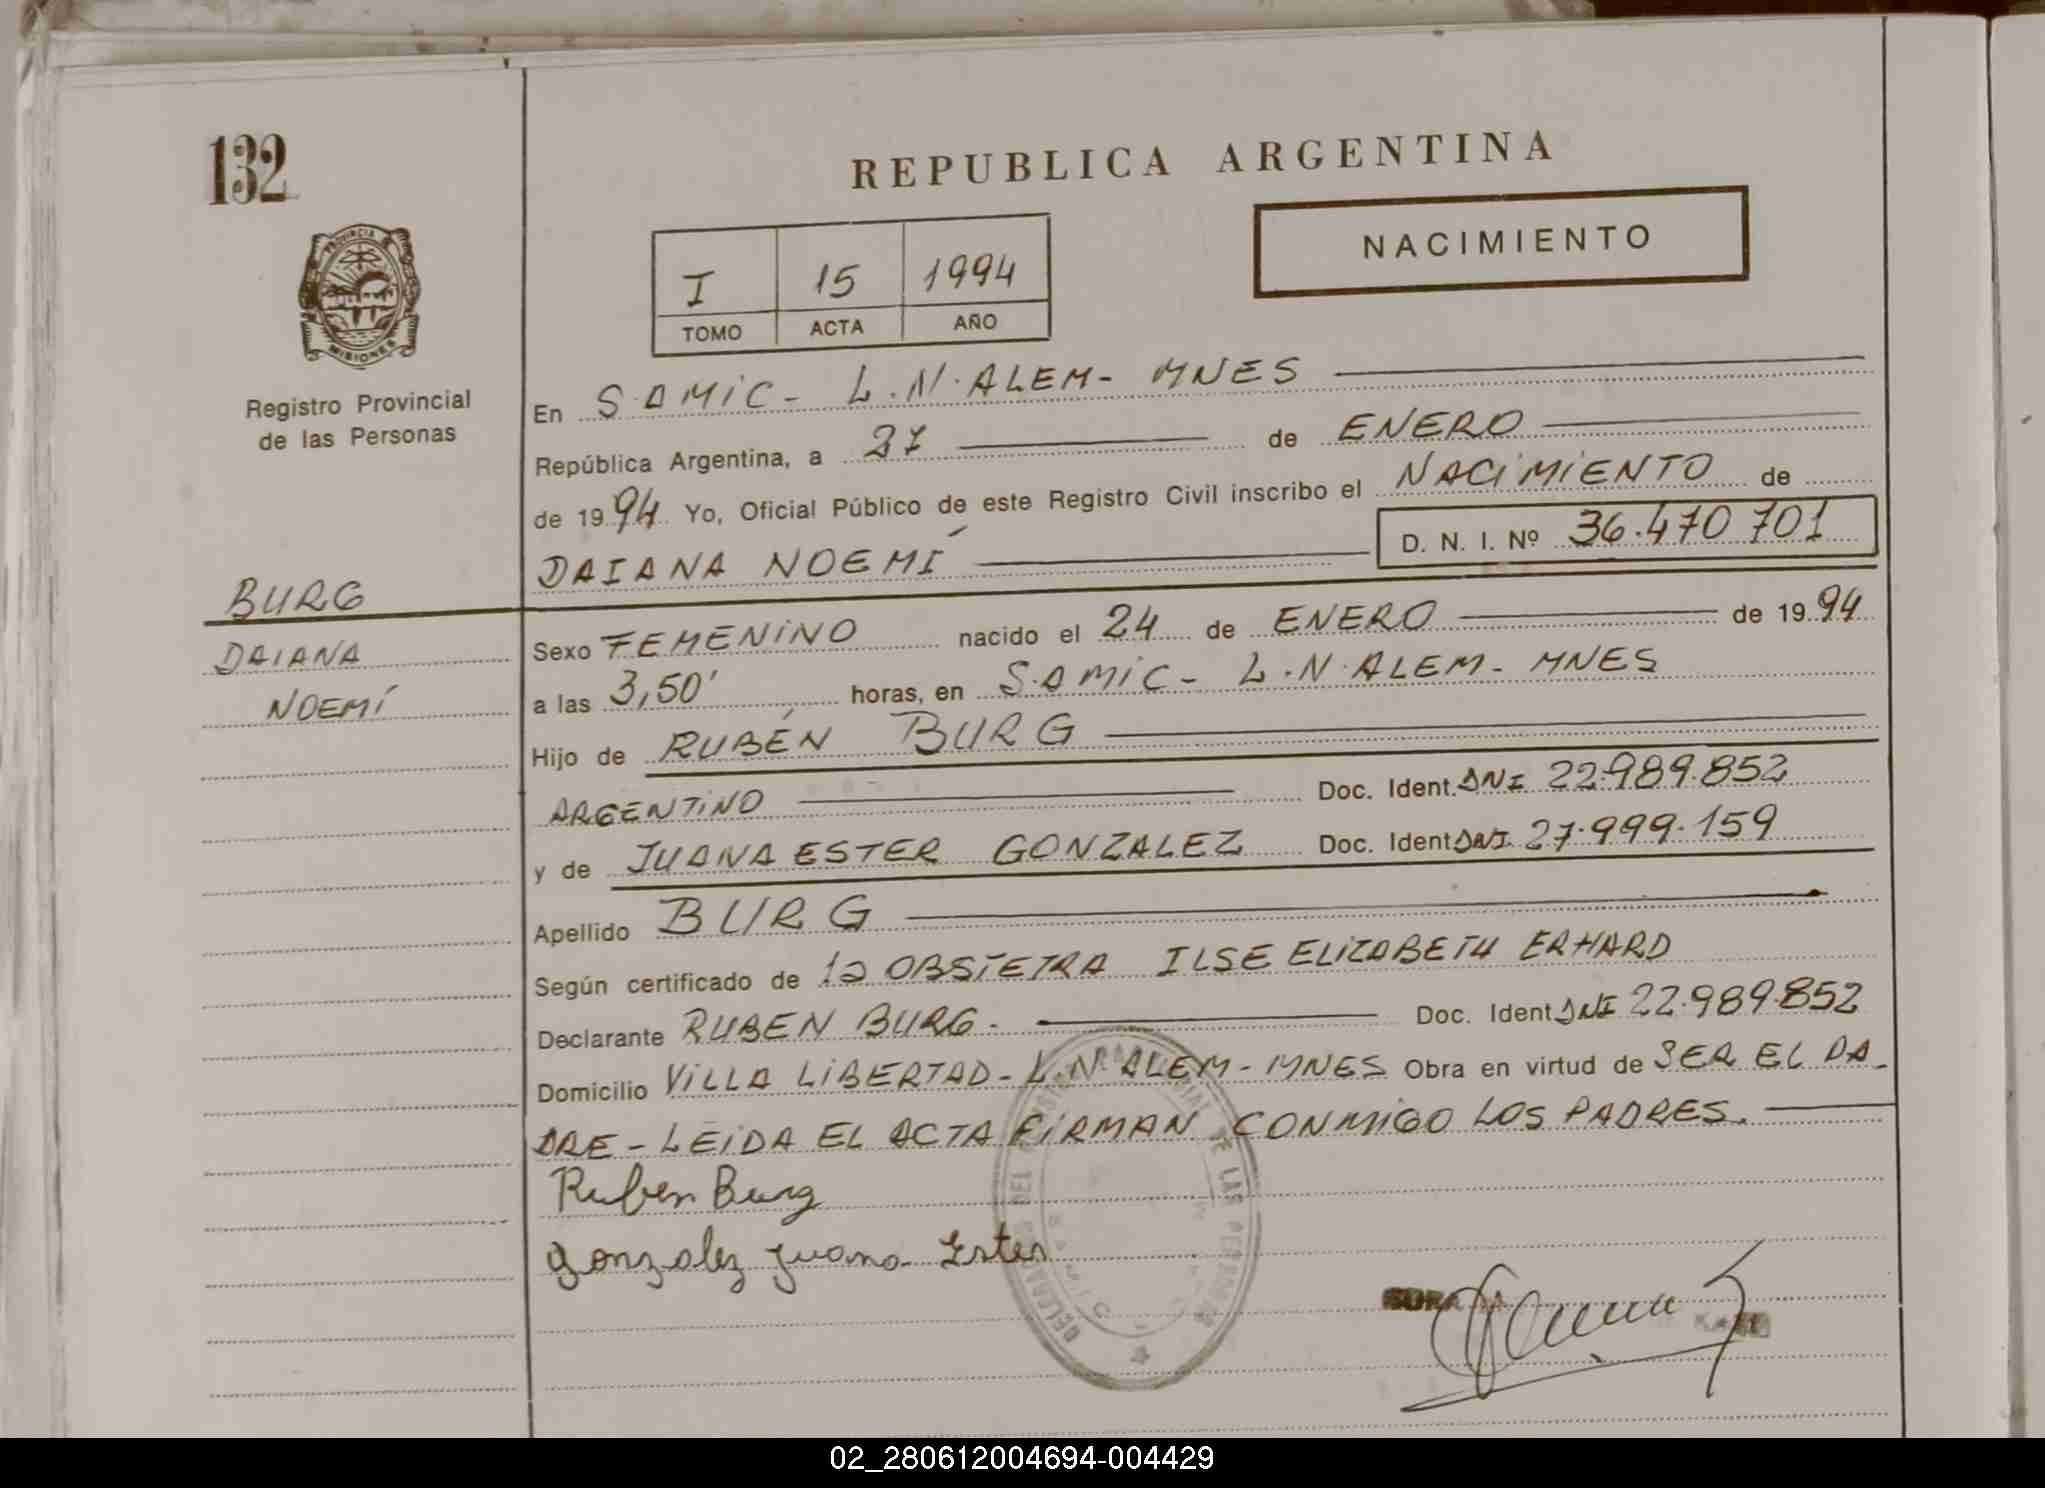 132
REPUBLICA ARGENTINA
PROVINCIA DE
MISIONES
Registro Provincial
de las Personas
NACIMIENTO
I 15 1994
TOMO ACTA AÑO
En S.AMIC- L.N.ALEM- MNES
República Argentina, a 27 de ENERO
de 1994 Yo, Oficial Público de este Registro Civil inscribo el NACIMIENTO de
DAIANA NOEMÍ D. N. I. Nº 36.470 701
BURG
DAIANA
NOEMÍ
Sexo FEMENINO nacido el 24 de ENERO de 1994
a las 3,50' horas, en S.AMIC- L.N.ALEM- MNES
Hijo de RUBÉN BURG
ARGENTINO Doc. Ident. DNI 22.989.852
y de JUANA ESTER GONZALEZ Doc. Ident DNI. 27.999.159
Apellido BURG
Según certificado de la OBSTETRA ILSE ELIZABETH ERHARD
Declarante RUBEN BURG. Doc. Ident DNI 22.989.852
Domicilio VILLA LIBERTAD- L.N ALEM- MNES Obra en virtud de SER EL PA-
DRE - LEIDA EL ACTA FIRMAN CONMIGO LOS PADRES.
Ruben Burg
Gonzalez Juana Ester
02_280612004694-004429